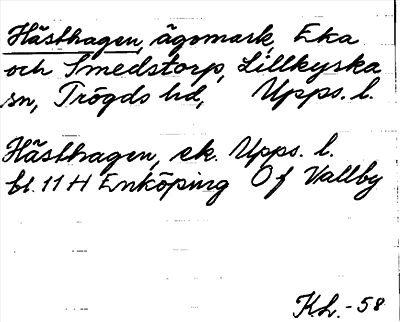 Hästhagen, ägomark, Eka
och Smedstorp, Lillkyrka
sn, Trögds hd, Upps. l.
Hästhagen, ek. Upps. l.
bl. 11 H Enköping Of Vallby
K.L. -58